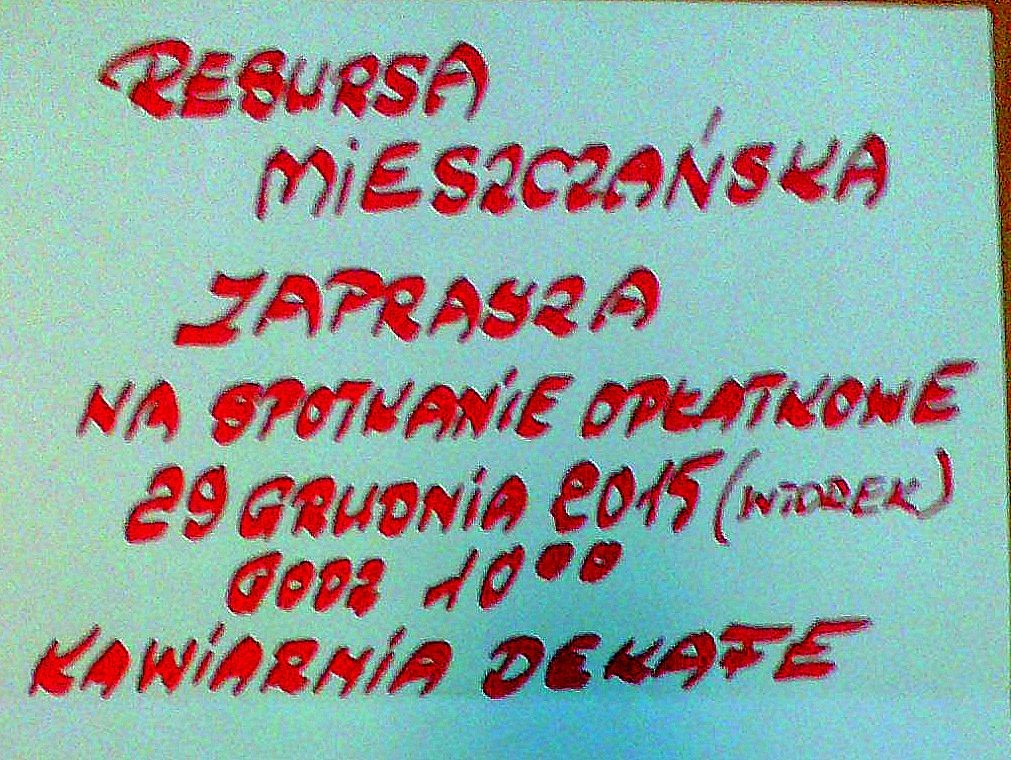 REBURSA
MiESZCZAŃSKA
ZAPRASZA
NA SPOTKANiE OPŁATKOWE
29 GRUDNiA 2015 (WTOREK)
GODZ 10⁰⁰
KAWiARNiA DEKAFE